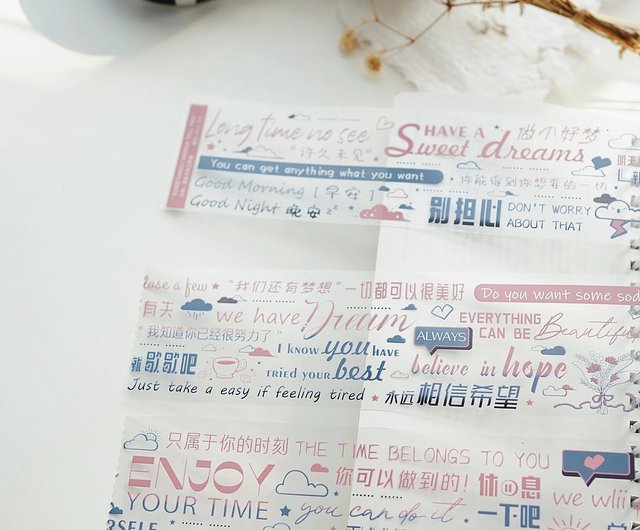 Long time no see
"许久未见"
You can get anything what you want
Good Morning [早安]
Good Night 晚安 zz
HAVE A 做个好梦
Sweet dreams
你能得到你想要的一切
别担心 DON'T WORRY
ABOUT THAT
lose a few ★ "我们还有梦想" 一切都可以很美好 Do you want some
we have Dream
EVERYTHING
CAN BE Beautiful
"我知道你已经很努力了"
ALWAYS
I KNOW you HAVE
TRIED YOUR best
歇歇吧
believe in hope
Just take a easy if feeling tired ★ 永远相信希望
只属于你的时刻 THE TIME BELONGS TO YOU
ENJOY
YOUR TIME
你可以做到的! 休息
you can do it
一下吧
we